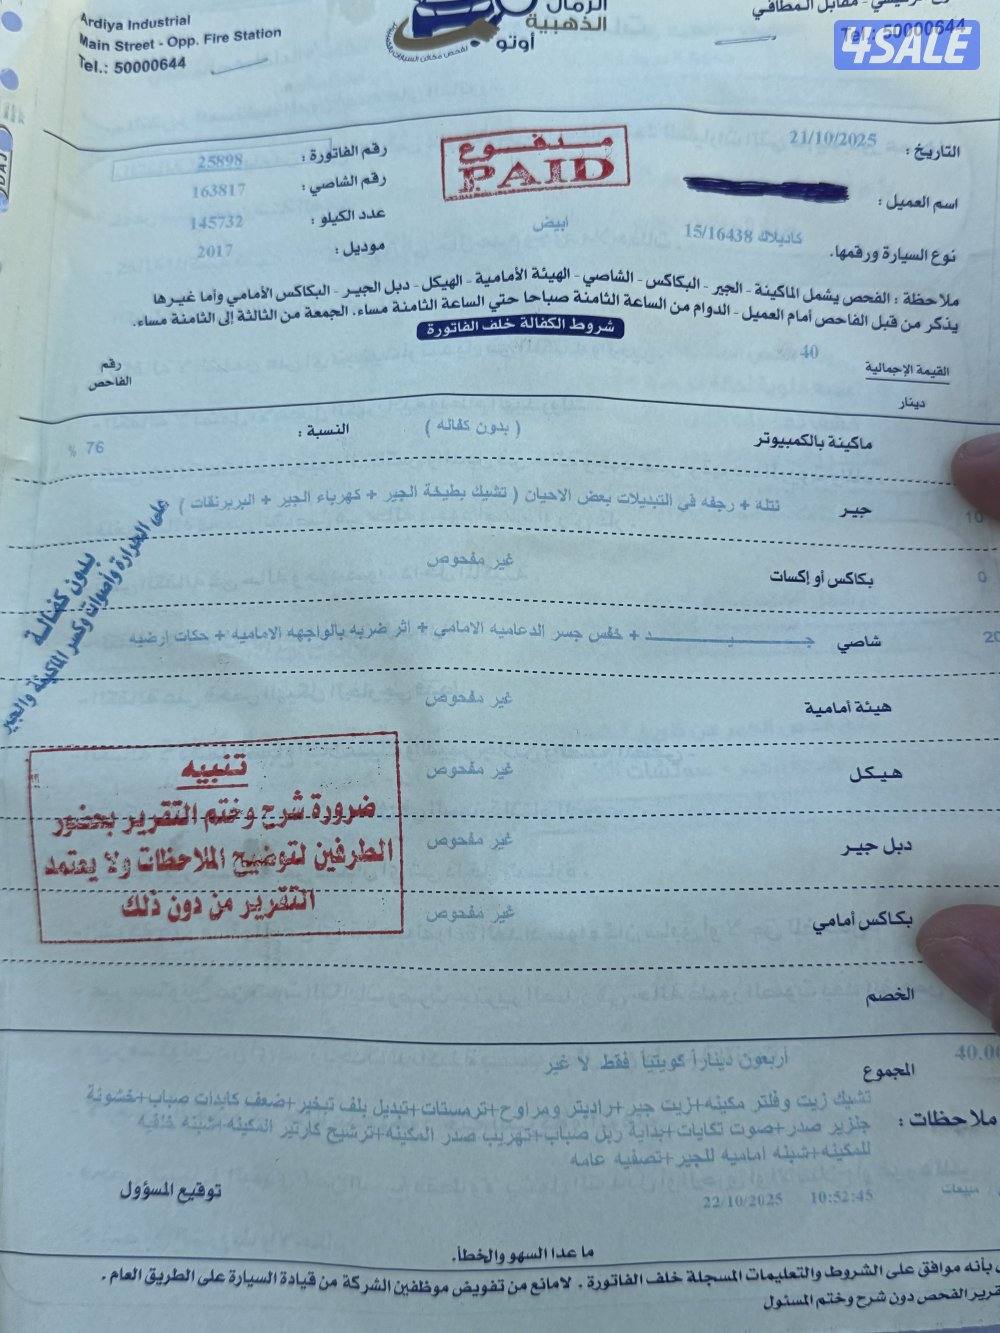 Ardiya Industrial
Main Street - Opp. Fire Station
Tel.: 50000644
الرمال
الذهبية
أوتو
مقابل المطافي
Tel.: 50000644
4SALE
التاريخ : 21/10/2025
مدفوع
PAID
رقم الفاتورة : 25898
اسم العميل :
رقم الشاصي : 163817
نوع السيارة ورقمها. كاديلاك 15/16438 ابيض
عدد الكيلو : 145732
موديل : 2017
ملاحظة : الفحص يشمل الماكينة - الجير - البكاكس - الشاصي - الهيئة الأمامية - الهيكل - دبل الجير - البكاكس الأمامي وأما غيرها
يذكر من قبل الفاحص أمام العميل - الدوام من الساعة الثامنة صباحا حتي الساعة الثامنة مساء. الجمعة من الثالثة إلى الثامنة مساء.
شروط الكفالة خلف الفاتورة
القيمة الإجمالية 40
دينار
رقم
الفاحص
ماكينة بالكمبيوتر ( بدون كفاله ) النسبة : 76 %
جير نتله + رجفه في التبديلات بعض الاحيان ( تشيك بطيخة الجير + كهرباء الجير + البربرنقات )
10
بكاكس أو إكسات غير مفحوص
0
شاصي جـــيـــد + خفس جسر الدعاميه الامامي + اثر ضربه بالواجهه الاماميه + حكات ارضيه
20
هيئة أمامية غير مفحوص
هيكل غير مفحوص
دبل جير غير مفحوص
بكاكس أمامي غير مفحوص
الخصم
بدون كفالة
على الحرارة وأصوات وكسر الماكينة والجير
تنبيه
ضرورة شرح وختم التقرير بحضور
الطرفين لتوضيح الملاحظات ولا يعتمد
التقرير من دون ذلك
المجموع أربعون ديناراً كويتياً فقط لا غير
40.00
ملاحظات : تشيك زيت وفلتر مكينه+زيت جير+راديتر ومراوح+ترمستات+تبديل بلف تبخير+ضعف كابدات صباب+خشونة
جلزير صدر+صوت تكايات+بداية ربل صباب+تهريب صدر المكينه+ترشيح كارتير المكينه+شبنه خلفيه
للمكينه+شبنه اماميه للجير+تصفيه عامه
مبيعات 10:52:45 22/10/2025
توقيع المسؤول
ما عدا السهو والخطأ.
بأنه موافق على الشروط والتعليمات المسجلة خلف الفاتورة . لامانع من تفويض موظفين الشركة من قيادة السيارة على الطريق العام .
الفحص دون شرح وختم المسئول